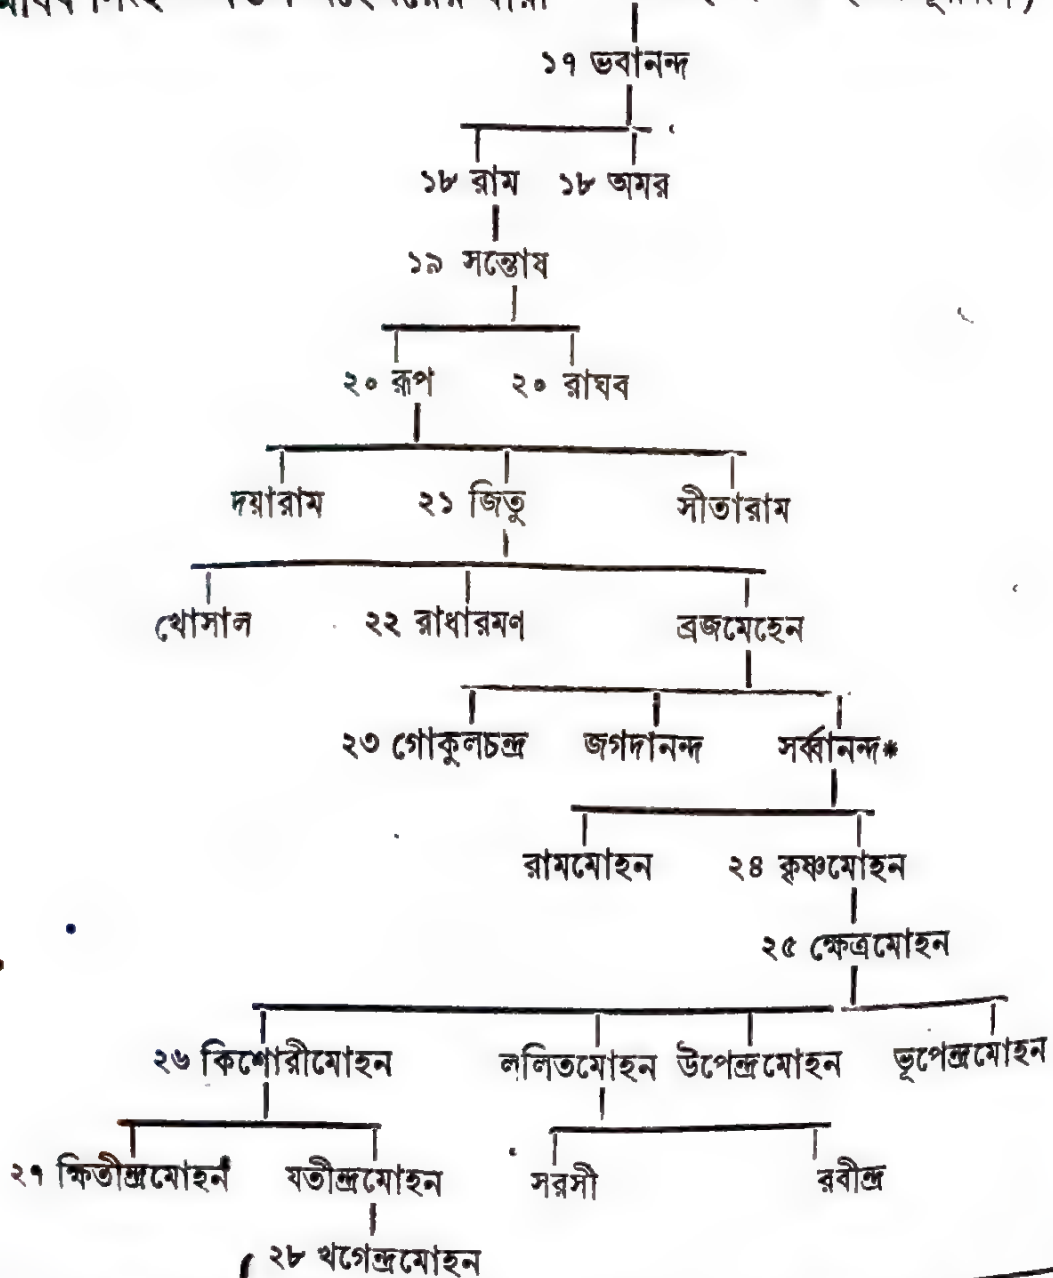 ১৭ ভবানন্দ
১৮ রাম ১৮ অমর
১৯ সন্তোষ
২০ রূপ ২০ রাঘব
দয়ারাম ২১ জিতু সীতারাম
খোসাল ২২ রাধারমণ ব্রজমেহেন
২৩ গোকুলচন্দ্র জগদানন্দ সর্ব্বানন্দ*
রামমোহন ২৪ কৃষ্ণমোহন
২৫ ক্ষেত্রমোহন
২৬ কিশোরীমোহন ললিতমোহন উপেন্দ্রমোহন ভূপেন্দ্রমোহন
২৭ ক্ষিতীন্দ্রমোহন যতীন্দ্রমোহন সরসী রবীন্দ্র
২৮ খগেন্দ্রমোহন